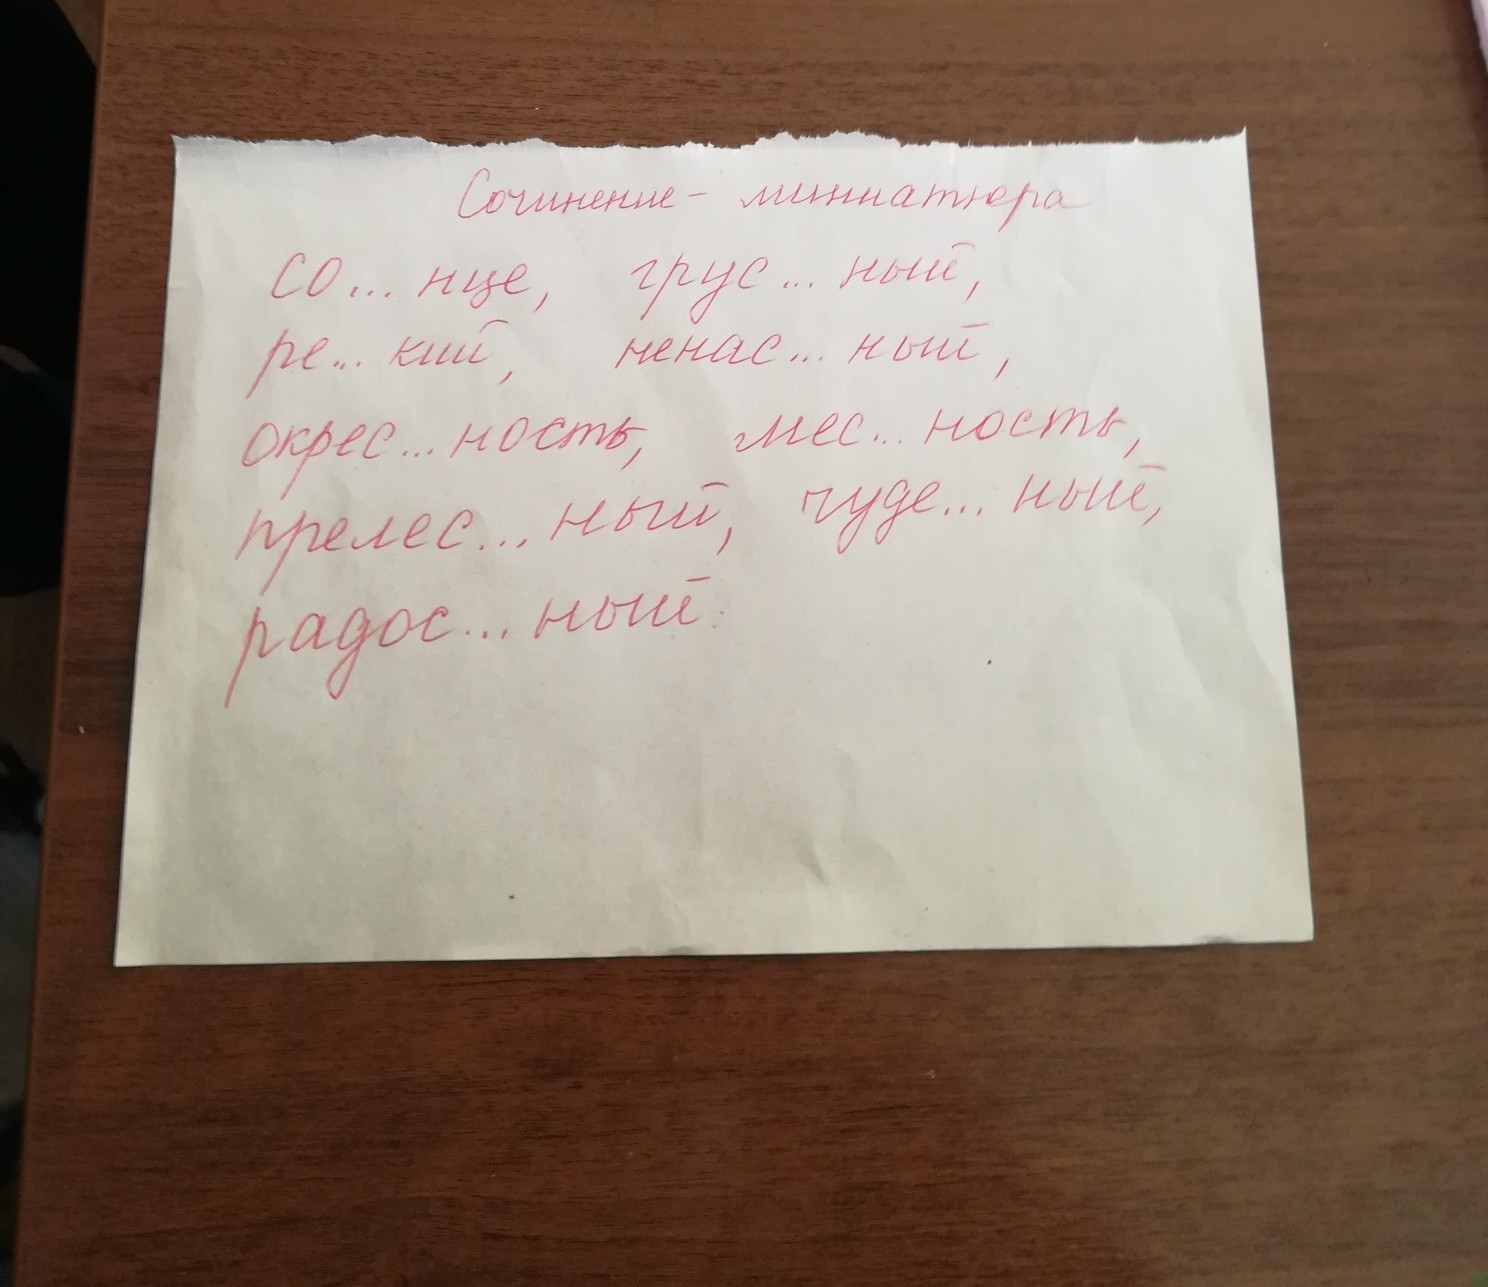 Сочинение - миниатюра
со... нце, грус... ный,
ре... кий, ненас... ный,
окрес... ность, мес... ность,
прелес... ный, чуде... ный,
радос... ный.